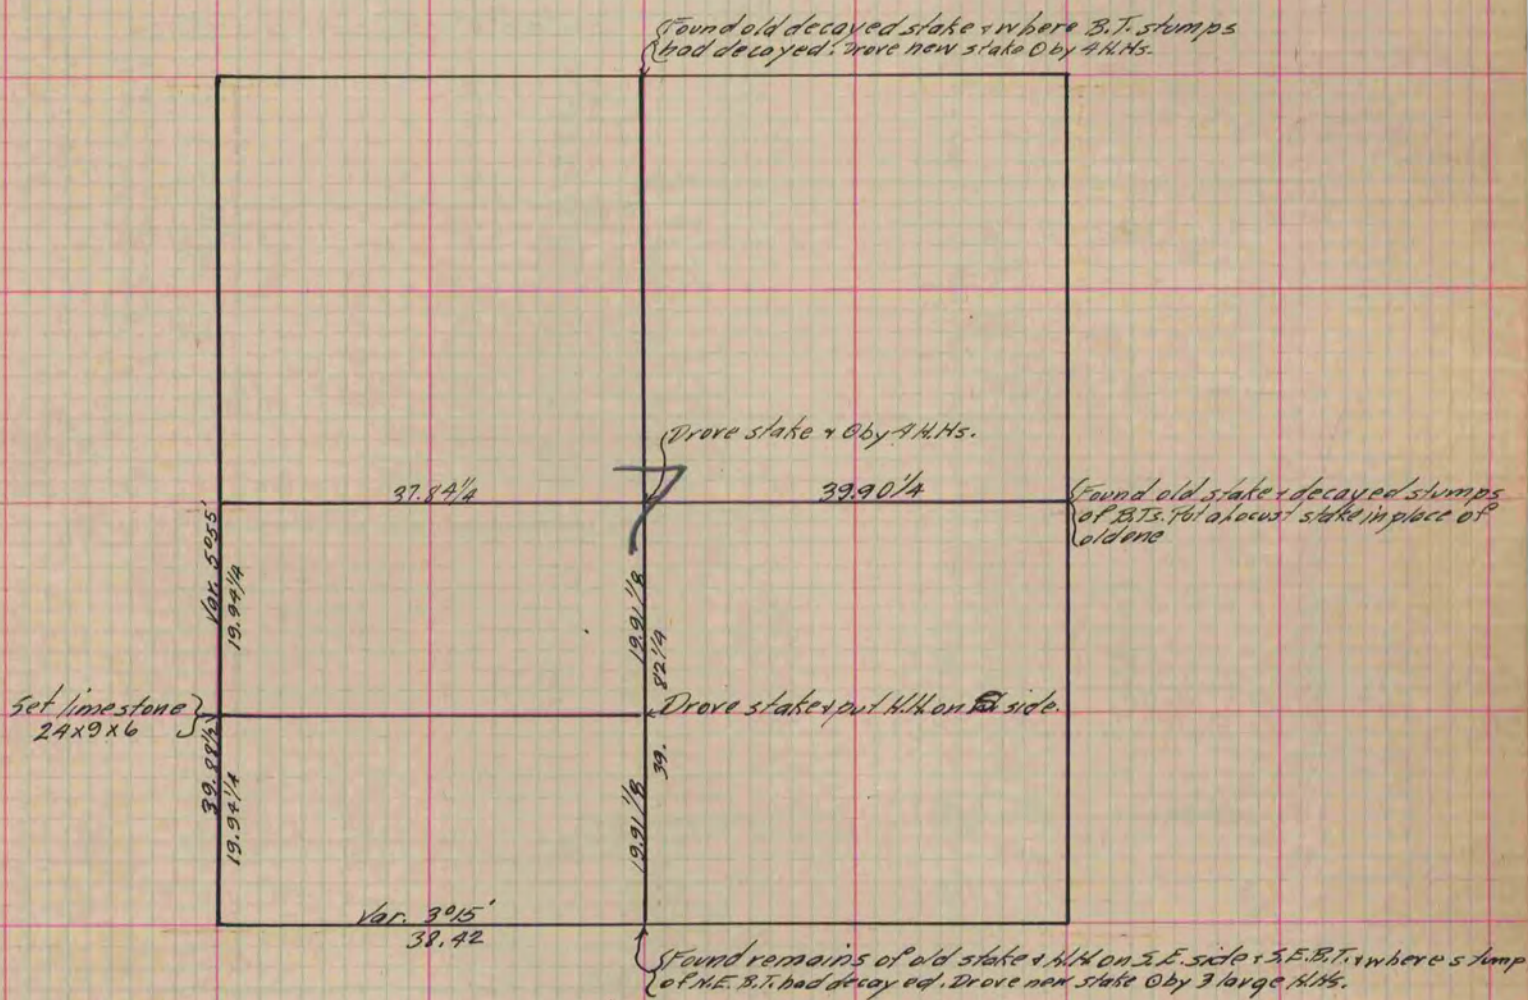 Found old decayed stake & where B.T. stumps
had decayed. Drove new stake O by 4 H.Hs.
Drove stake & O by 4 H.Hs.
7
37.84 1/4
39.90 1/4
Found old stake & decayed stumps
of B.Ts. Put a locust stake in place of
old one
Var. 5°55'
19.94 1/4
19.91 1/8
39. 82 1/4
Set limestone
24x9x6
Drove stake & put H.H. on side.
39.88 1/2
19.94 1/4
19.91 1/8
Var. 3°15'
38.42
Found remains of old stake & H.H. on S.E. side & S.E.B.T. & where stump
of N.E. B.T. had decayed. Drove new stake O by 3 large H.Hs.